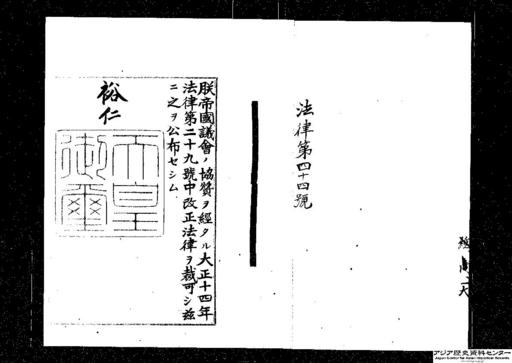 法律第四十四號
朕帝國議會ノ協賛ヲ經タル大正十四年
法律第二十九號中改正法律ヲ裁可シ茲
ニ之ヲ公布セシム
裕仁
天皇
御璽
アジア歴史資料センター
Japan Center for Asian Historical Records